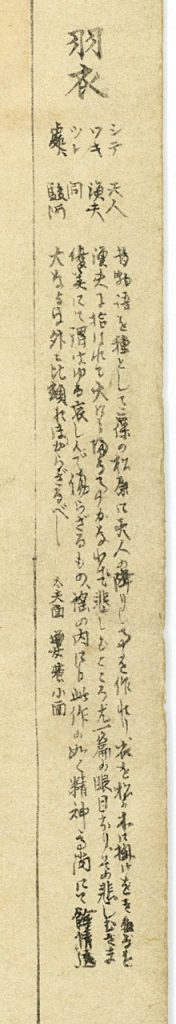 羽衣
シテ 天人
ワキ 漁夫
ツレ 同
處 駿河
昔物語を種として三保の松原に天人の降りし事を作れり、衣を松の木に掛けをき
漁夫に拾はれて天に帰る事かなはず悲しむところ尤一篇の眼目なり、その悲しむさま
優美にて謂はゆる哀しんで傷らざるもの、謡の内にも此作の如く精神高尚にて餘情
大なるは外に比類なかるべし
太夫面 小面